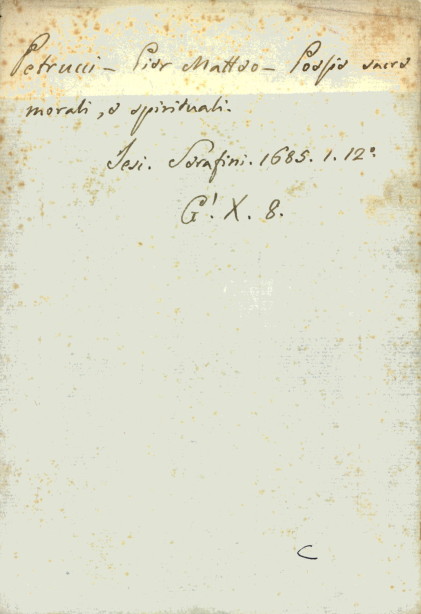 Petrucci - Pier Matteo - Poesie sacre
morali, e spirituali.
Iesi. Serafini. 1685. 1. 12º.
G! X. 8.
C